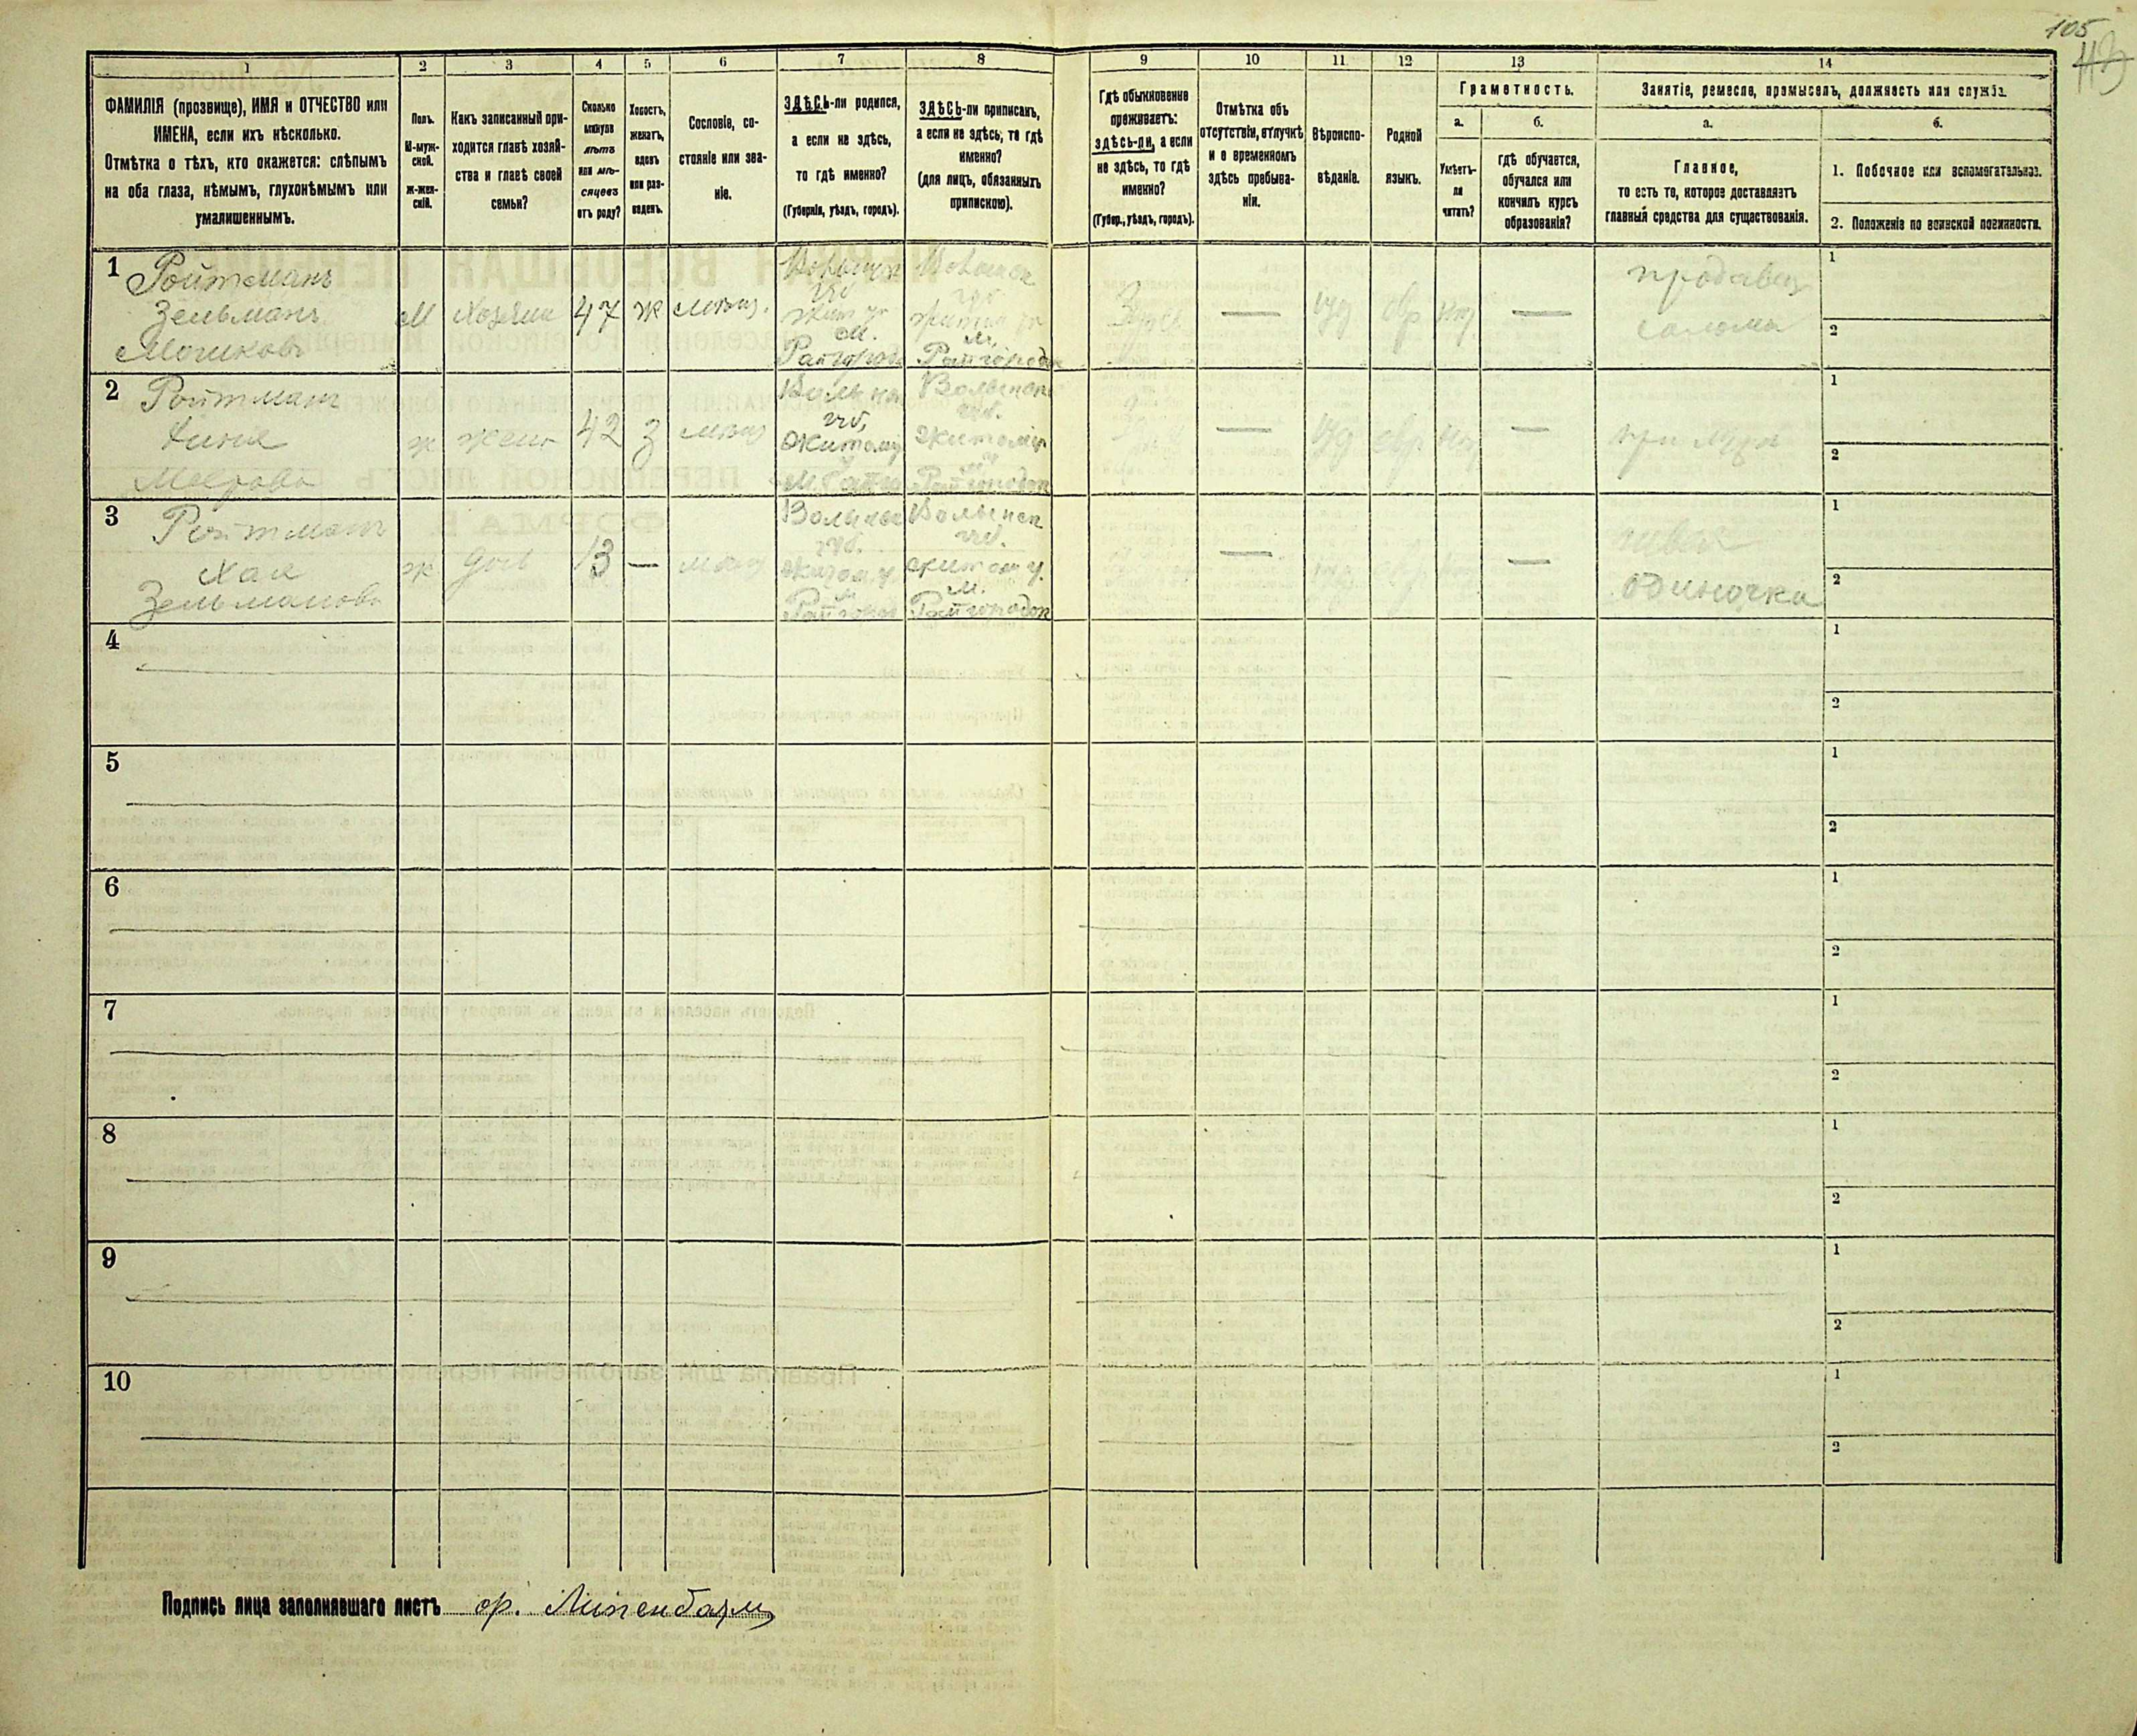 105
1
2
3
4
5
6
7
8
9
10
11
12
13
14
ФАМИЛІЯ (прозвище), ИМЯ и ОТЧЕСТВО или
ИМЕНА, если ихъ нѣсколько.
Отмѣтка о тѣхъ, кто окажется: слѣпымъ
на оба глаза, нѣмымъ, глухонѣмымъ или
умалишеннымъ.
Полъ.
М-муж-
ской.
Ж-жен-
скій.
Какъ записанный при-
ходится главѣ хозяй-
ства и главѣ своей
семьи?
Сколько
минуло
лѣтъ
или мѣ-
сяцевъ
отъ роду?
Холостъ,
женатъ,
вдовъ
или раз-
веденъ.
Сословіе, со-
стояніе или зва-
ніе.
ЗДѢСЬ-ли родился,
а если не здѣсь,
то гдѣ именно?
(Губернія, уѣздъ, городъ).
ЗДѢСЬ-ли приписанъ,
а если не здѣсь, то гдѣ
именно?
(для лицъ, обязанныхъ
припискою).
Гдѣ обыкновенно
проживаетъ:
здѣсь-ли, а если
не здѣсь, то гдѣ
именно?
(Губер., уѣздъ, городъ).
Отмѣтка объ
отсутствіи, отлучкѣ
и о временномъ
здѣсь пребыва-
ніи.
Вѣроиспо-
вѣданіе.
Родной
языкъ.
Грамотность.
а.
б.
Умѣетъ-
ли
читать?
гдѣ обучается,
обучался или
кончилъ курсъ
образованія?
Занятіе, ремесло, промыселъ, должность или служба.
а.
б.
Главное,
то есть то, которое доставляетъ
главныя средства для существованія.
1. Побочное или вспомогательное.
2. Положеніе по воинской повинности.
1
Ройтманъ
Зельманъ
Мошковъ
М
Хозяин
47
Ж
мѣщ.
губ
м.
Райгородок
м.
Райгородок
Здѣсь
—
іуд
евр
—
продавец
соломы
1
2
2
Ройтман
Меерова
ж
жена
42
З
мѣщ
губ,
Житому
Волынск
губ.
Житомір
Райгородок
—
іуд
евр.
—
при мужѣ
1
2
3
Ройтман
Хая
Зельманова
ж
дочь
13
—
мѣщ
губ.
Волынск
губ.
Житом у.
м.
Райгородок
—
—
швея
одиночка
1
2
4
1
2
5
1
2
6
1
2
7
1
2
8
1
2
9
1
2
10
1
2
Подпись лица заполнявшаго листъ